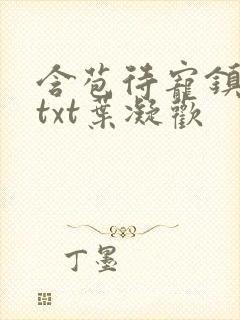 含苞待寵鎮
txt葉凝歡
丁墨